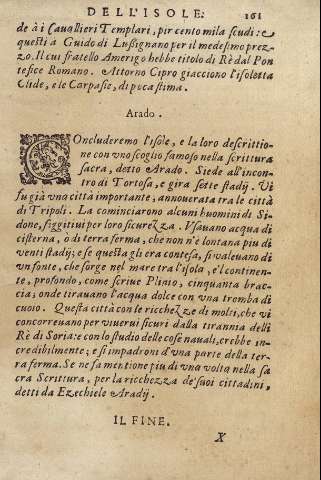 DELL'ISOLE. 161
de à i Cauallieri Templari, per cento mila scudi: e
questi à Guido di Lusignano per il medesimo prez-
zo. Il cui fratello Amerigo hebbe titolo di Rè dal Pon
tefice Romano. Attorno Cipro giacciono l'isoletta
Clide, e le Carpasie, di poca stima.
Arado.
COncluderemo l'isole, e la loro descrittio
ne con vno scoglio famoso nella scrittura
sacra, detto Arado. Siede all'incon
tro di Tortosa, e gira sette stadij. Vi
fu già vna città importante, annouerata tra le città
di Tripoli. La cominciarono alcuni huomini di Si
done, fuggitiui per loro sicurezza. Vsauano acqua di
cisterna, ò di terra ferma, che non n'è lontana piu di
venti stadij; e se questa gli era contesa, si valeuano di
vn fonte, che sorge nel mare tra l'isola, e'l continen
te, profondo, come scriue Plinio, cinquanta brac-
cia; onde tirauano l'acqua dolce con vna tromba di
cuoio. Questa città con le ricchezze di molti, che vi
concorreuano per viuerui sicuri dalla tirannia delli
Rè di Soria: e con lo studio delle cose nauali, crebbe in
credibilmente; e si impadronì d'vna parte della ter-
ra ferma. Se ne fa mentione piu di vna volta nella sa
cra Scrittura, per la ricchezza de' suoi cittadini,
detti da Ezechiele Aradij.
IL FINE.
X